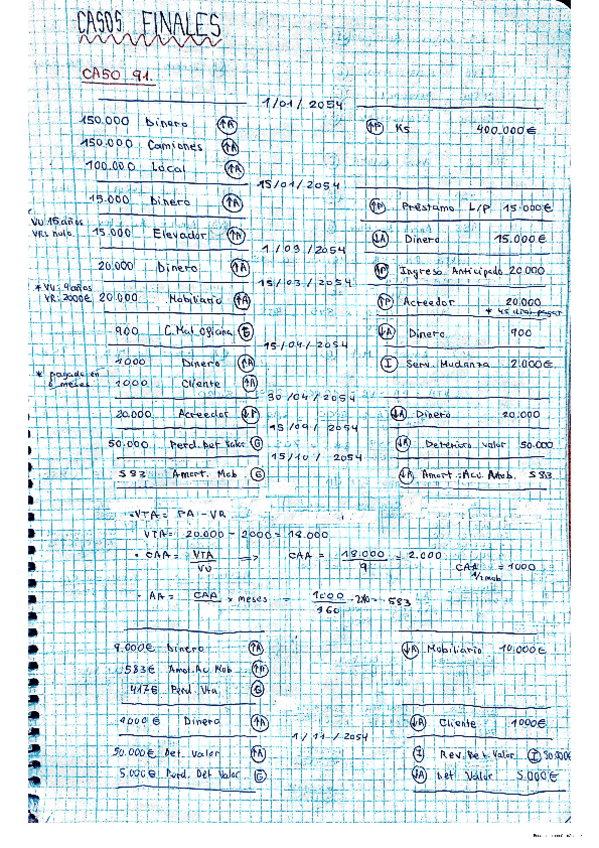 CASOS FINALES
CASO 91.
1/01/2054
150.000 Dinero ↑A
↑P Ks 400.000€
150.000 Camiones ↑A
100.000 Local ↑A
15/01/2054
15.000 Dinero ↑A
↑P Préstamo L/P 15.000€
VU 15 años
VR: nulo.
15.000 Elevador ↑A
↓A Dinero 15.000€
1/03/2054
20.000 Dinero ↑A
↑P Ingreso Anticipado 20.000
15/03/2054
* VU: 9 años
VR: 2000€
20.000 Mobiliario ↑A
↑P Acreedor 20.000
* 45 días pagar
900 C. Mat. Oficina G
↓A Dinero 900
15/04/2054
1000 Dinero ↑A
I Serv. Mudanza 2.000€
* pagado en
6 meses
1000 Cliente ↑A
30/04/2054
20.000 Acreedor ↓P
↓A Dinero 20.000
15/09/2054
50.000 Perd. Det Valor G
↓A Deterioro valor 50.000
15/10/2054
583 Amort. Mob G
↓A Amort. Acu. Mob. 583
• VTA = PA - VR
VTA = 20.000 - 2000 = 18.000
• CAA = VTA / VU => CAA = 18.000 / 9 = 2.000
CAA 1/2 mob = 1000
• AA = CAA × meses = 1000 / 360 · 210 = 583
9.000€ Dinero ↑A
↓A Mobiliario 10.000€
583€ Amo. Ac Mob ↑A
417€ Perd. Vta G
1000€ Dinero ↑A
↓A Cliente 1000€
1/11/2054
50.000€ Det. Valor ↑A
I Rev. Det. Valor I 50.000€
5.000€ Perd. Det Valor G
↓A Det. Valor 5.000€